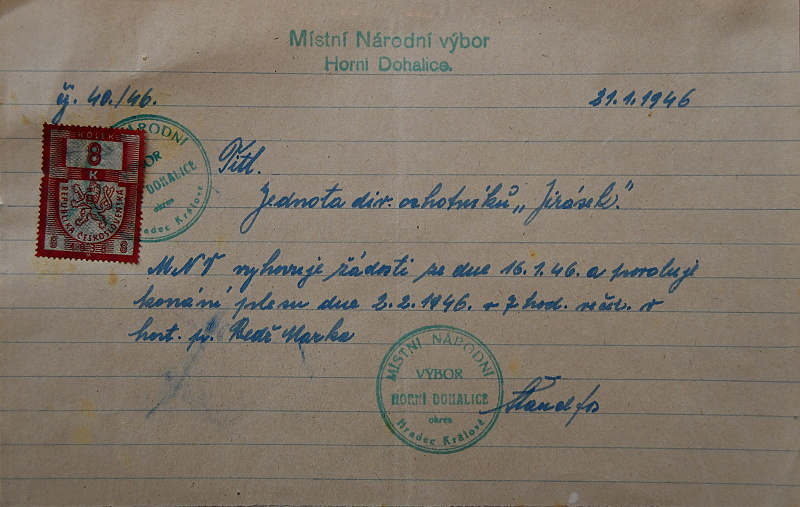 Místní Národní výbor
Horní Dohalice.
čj. 40./46.
21.1.1946
KOLEK
8
K
REPUBLIKA ČESKOSLOVENSKÁ
8
8
NÁRODNÍ
VÝBOR
DOHALICE
okres
Hradec Králové
Titl.
Jednota div. ochotníků „Jirásek."
MNV vyhovuje žádosti ze dne 16.1.46. a povoluje
konání plesu dne 2.2.1946. v 7 hod. večer. v
host. p.
MÍSTNÍ NÁRODNÍ
VÝBOR
HORNÍ DOHALICE
okres
Hradec Králové